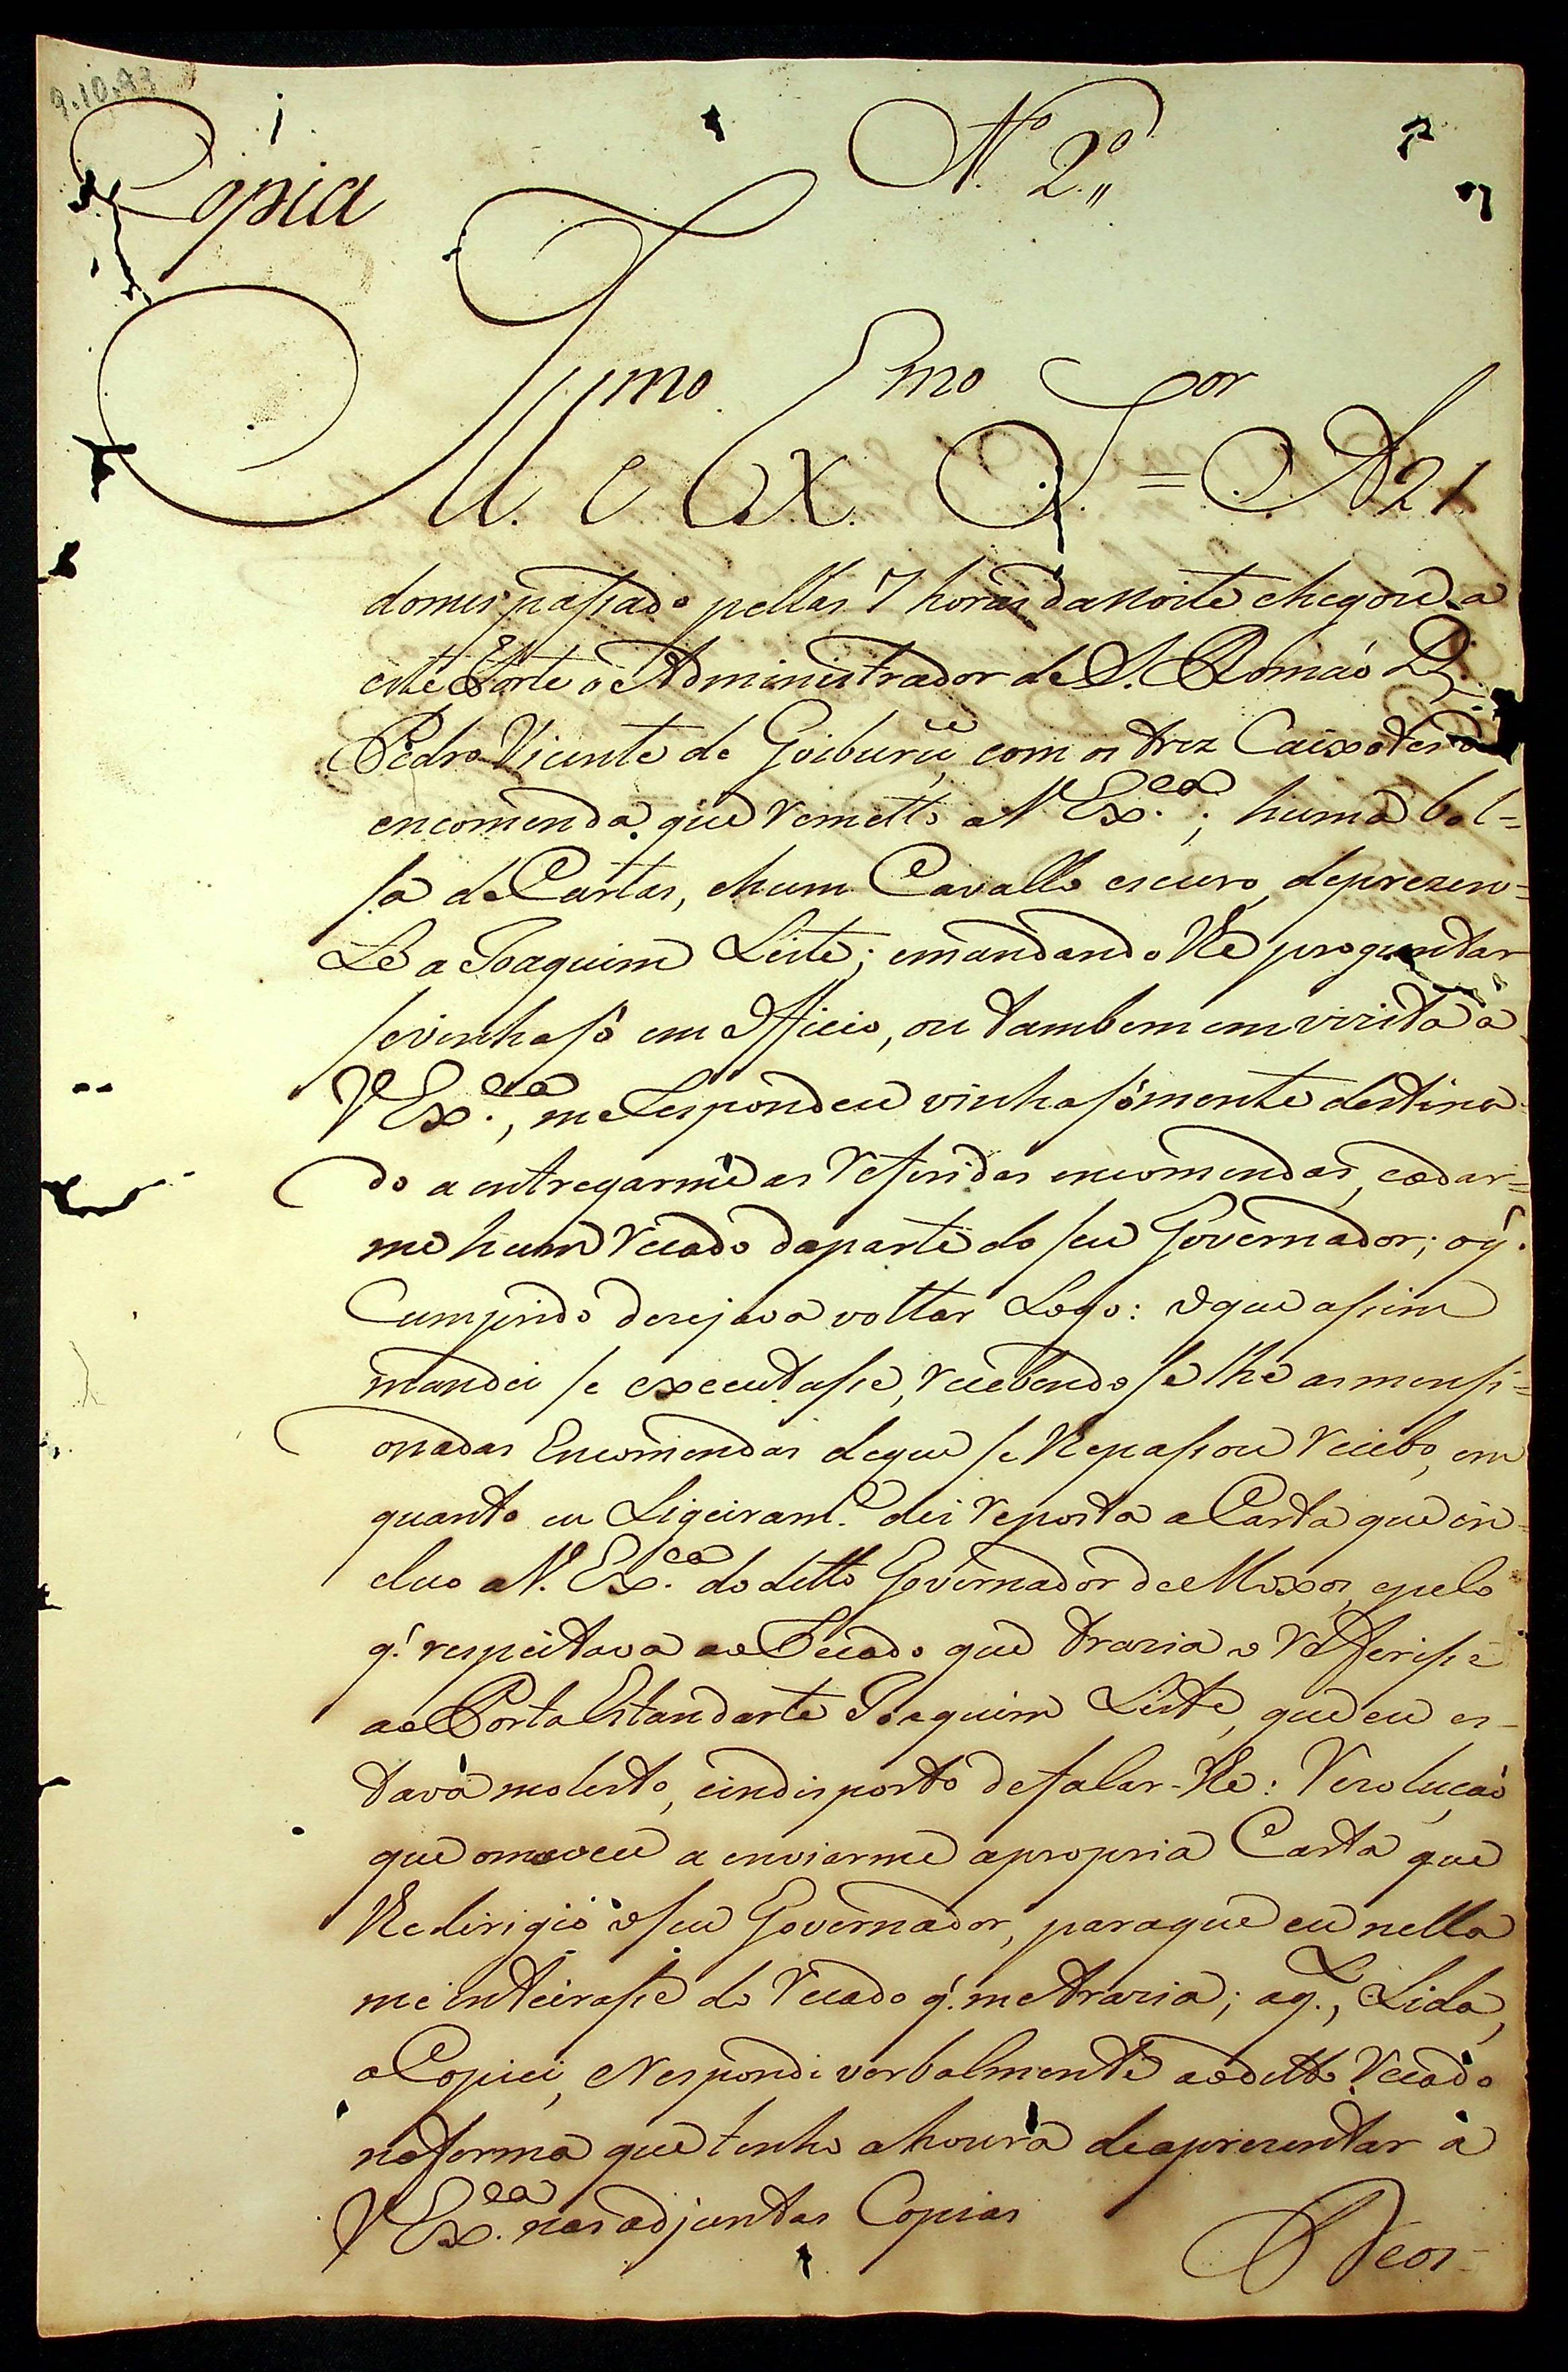 9.10.83
Copia
N.º 2.º
Ill.mo e Ex.mo S.or = A 21
do mes passado pellas 7 horas da noite chegou a
este Forte o Administrador de S. Romaõ D.
Pedro Vicente de Goiburú, com os trez Caixotes da
encomenda que remetto a V Ex.ca; huma bol=
sa de Cartas, e hum Cavallo escuro, de prezen=
te a Joaquim Leite; e mandando lhe proguntar
se vinha só em Officio, ou tambem em vizita a
V Ex.ca, me respondeu vinha sómente destina
do a entregarme as referidas encomendas, e a dar=
me hum recado da parte do seu Governador; o q.
Cumprido dezejava voltar Logo: o que assim
mandei se executasse, recebendo se lhe as mensi=
onadas Encomendas de que se lhe passou recibo, em
quanto eu Ligeiram.e dei reposta a Carta que in=
cluo a V. Ex.ca do ditto Governador de Moxos, e pelo
q. respeitava ao Recado que trazia o refferisse
ao Porta Estandarte Joaquim Leite, que eu es-
tava molesto, e indisposto de falar-lhe: Rezoluçaõ
que o moveu a enviarme a propria Carta que
lhe dirigio o seu Governador, para que eu nella
me inteirasse do recado q. me trazia; a q.l, Lida,
a Copiei, e Respondi verbalmente ao ditto recado
na forma que tenho a honra de aprezentar a
V Ex.ca nas adjuntas Copias
Deos-